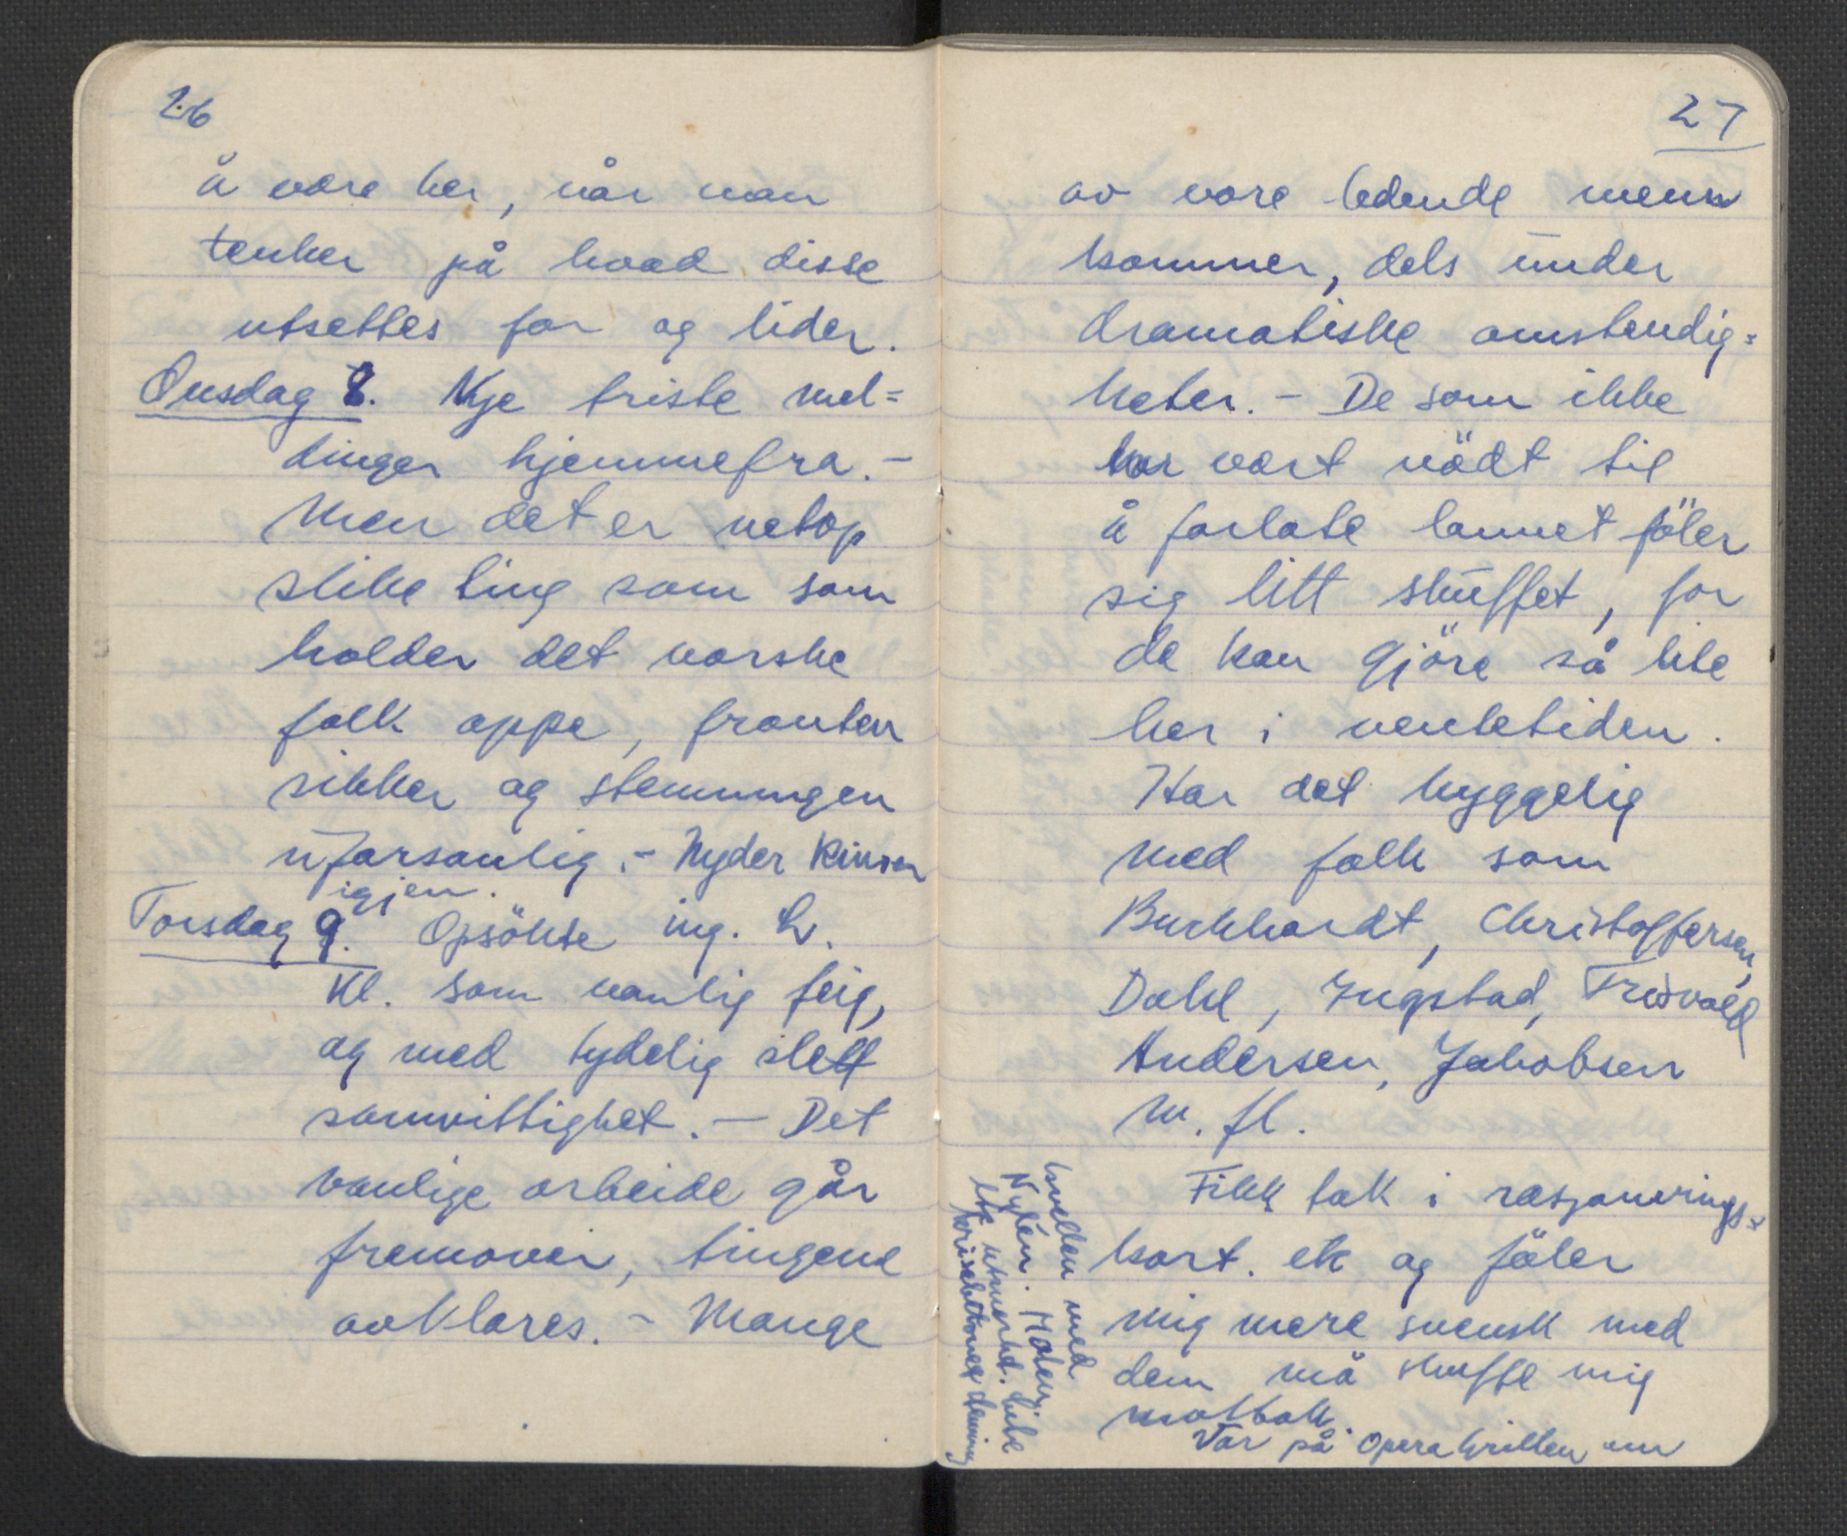 26
å være her, når man
tenker på hvad disse
utsettes for og lider.
Onsdag 8. Nye triste mel=
dinger hjemmefra. -
Men det er netop
slike ting som som
holder det norske
folk oppe, fronten
sikker og stemningen
uforsonlig. - Nyder kinoen
igjen.
Torsdag 9. Opsökte ing. L.
Kl. som vanlig feig,
og med tydelig slett
samvittighet. - Det
vanlige arbeide går
fremover, tingene
avklares. - Mange
27
av vore ledende menn
kommer, dels under
dramatiske omstendig=
heter. - De som ikke
har vært nödt til
å forlate lannet föler
sig litt skuffet, for
de kan gjöre så lite
her i ventetiden.
Har det hyggelig
med folk som
Burkhardt, Christoffersen,
Dahl, Ingstad, Tredvold
Andersen, Jakobsen
m. fl.
Fikk tak i rasjonerings=
kort. etc og föler
mig mere svensk med
dem må skaffe mig
matbok.
Var på Operagrillen om
kvelden med
Nylén. Maten
etc utmerket. Lite